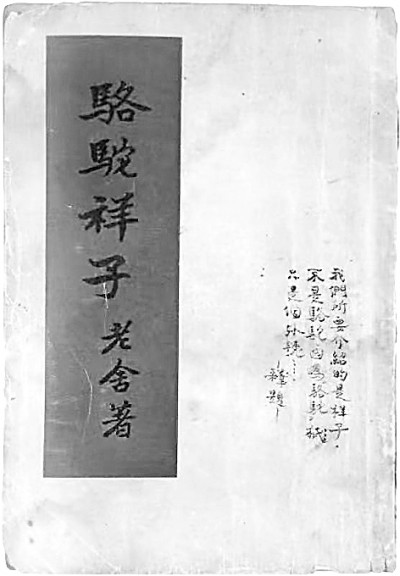 駱駝祥子 老舍著
我們所要介紹的是祥子，
不是駱駝，因為駱駝，
只是個外號…
題—